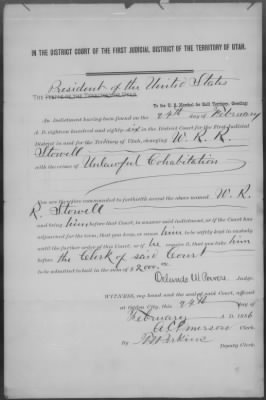 IN THE DISTRICT COURT OF THE FIRST JUDICIAL DISTRICT OF THE TERRITORY OF UTAH.
President of the United States
THE
To the U. S. Marshal for Said Territory, Greeting:
An Indictment having been found on the 24th day of February
A. D. eighteen hundred and eighty-six in the District Court for the First Judicial
District in and for the Territory of Utah, charging W. R. R.
Stowell
with the crime of Unlawful Cohabitation
You are therefore commanded to forthwith arrest the above named W. R.
R. Stowell
and bring him before that Court, to answer said indictment, or if the Court has
adjourned for the term, that you keep, or cause him to be safely kept in custody
until the further order of this Court, or if he require it, that you take him
before the Clerk of said Court
to be admitted to bail in the sum of $2000.00
Orlando W. Powers Judge.
WITNESS, my hand and the seal of said Court, affixed
at Ogden City, this 24th day of
February A. D. 1886
A C Emerson Clerk.
By Deputy Clerk.